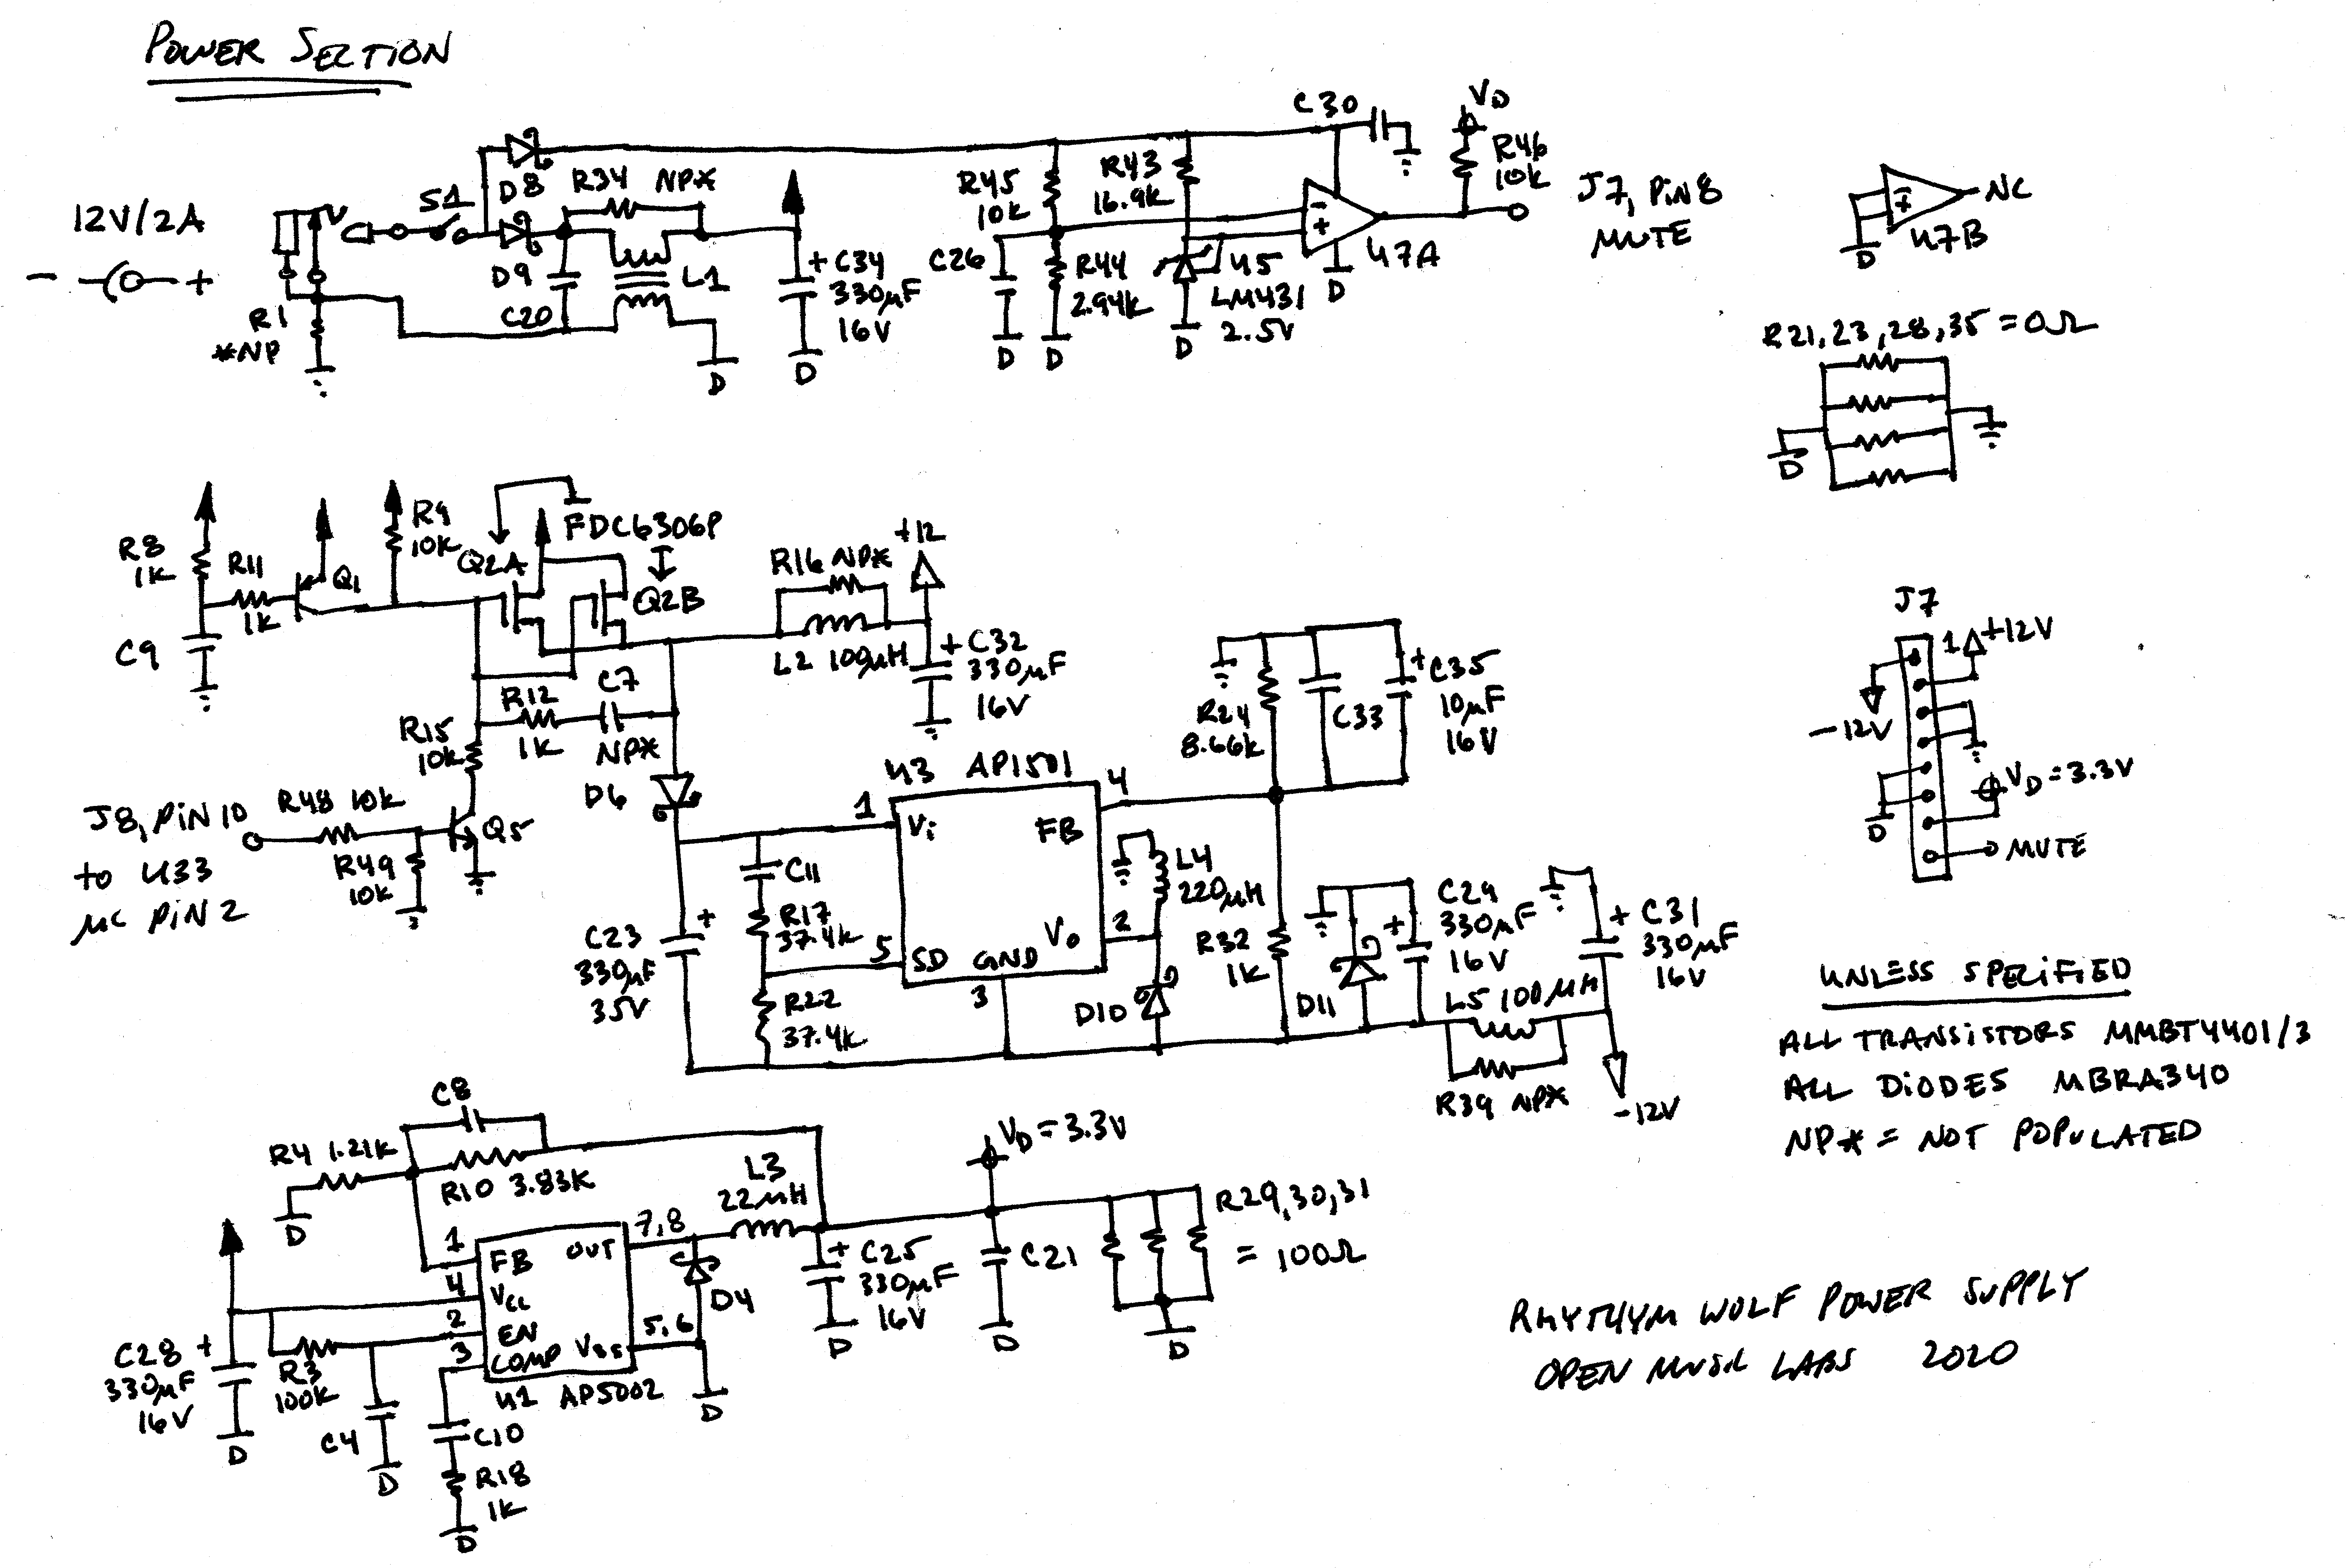 POWER SECTION
12V/2A
- +
R1
*NP
S1
D8
D9
C20
R34 NP*
L1
+ C34
330µF
16V
D
D
R45
10K
R43
16.9K
C26
R44
2.94K
U5
LM431
2.5V
D
D
D
C30
-
+
U7A
D
VD
R46
10K
J7, PIN 8
MUTE
-
+
NC
U7B
D
R21,23,28,35 = 0Ω
D
R8
1K
R11
1K
C9
Q1
R9
10K
Q2A
FDC6306P
Q2B
R16 NP*
L2 100µH
+12
+ C32
330µF
16V
R12
1K
C7
NP*
R15
10K
D6
J8, PIN 10
to U33
µC PIN 2
R48 10K
R49
10K
Q5
U3 AP1501
1
Vi
4
FB
5
SD
GND
3
Vo
2
C11
R17
37.4K
R22
37.4K
+
C23
330µF
35V
R24
8.66K
C33
+ C35
10µF
16V
L4
220µH
D10
R32
1K
D11
+
C29
330µF
16V
L5 100µH
R39 NP*
+ C31
330µF
16V
-12V
J7
1
+12V
-12V
VD = 3.3V
D
MUTE
UNLESS SPECIFIED
ALL TRANSISTORS MMBT4401/3
ALL DIODES MBRA340
NP* = NOT POPULATED
C8
R4 1.21K
R10 3.83K
D
1
FB
4
VCC
2
EN
3
COMP
7,8
OUT
5,6
VSS
U1 AP5002
C28 +
330µF
16V
D
R3
100K
C4
D
C10
R18
1K
D
L3
22µH
D4
D
+ C25
330µF
16V
D
VD = 3.3V
C21
D
R29,30,31
= 100Ω
D
RHYTHYM WOLF POWER SUPPLY
OPEN MUSIC LABS 2020